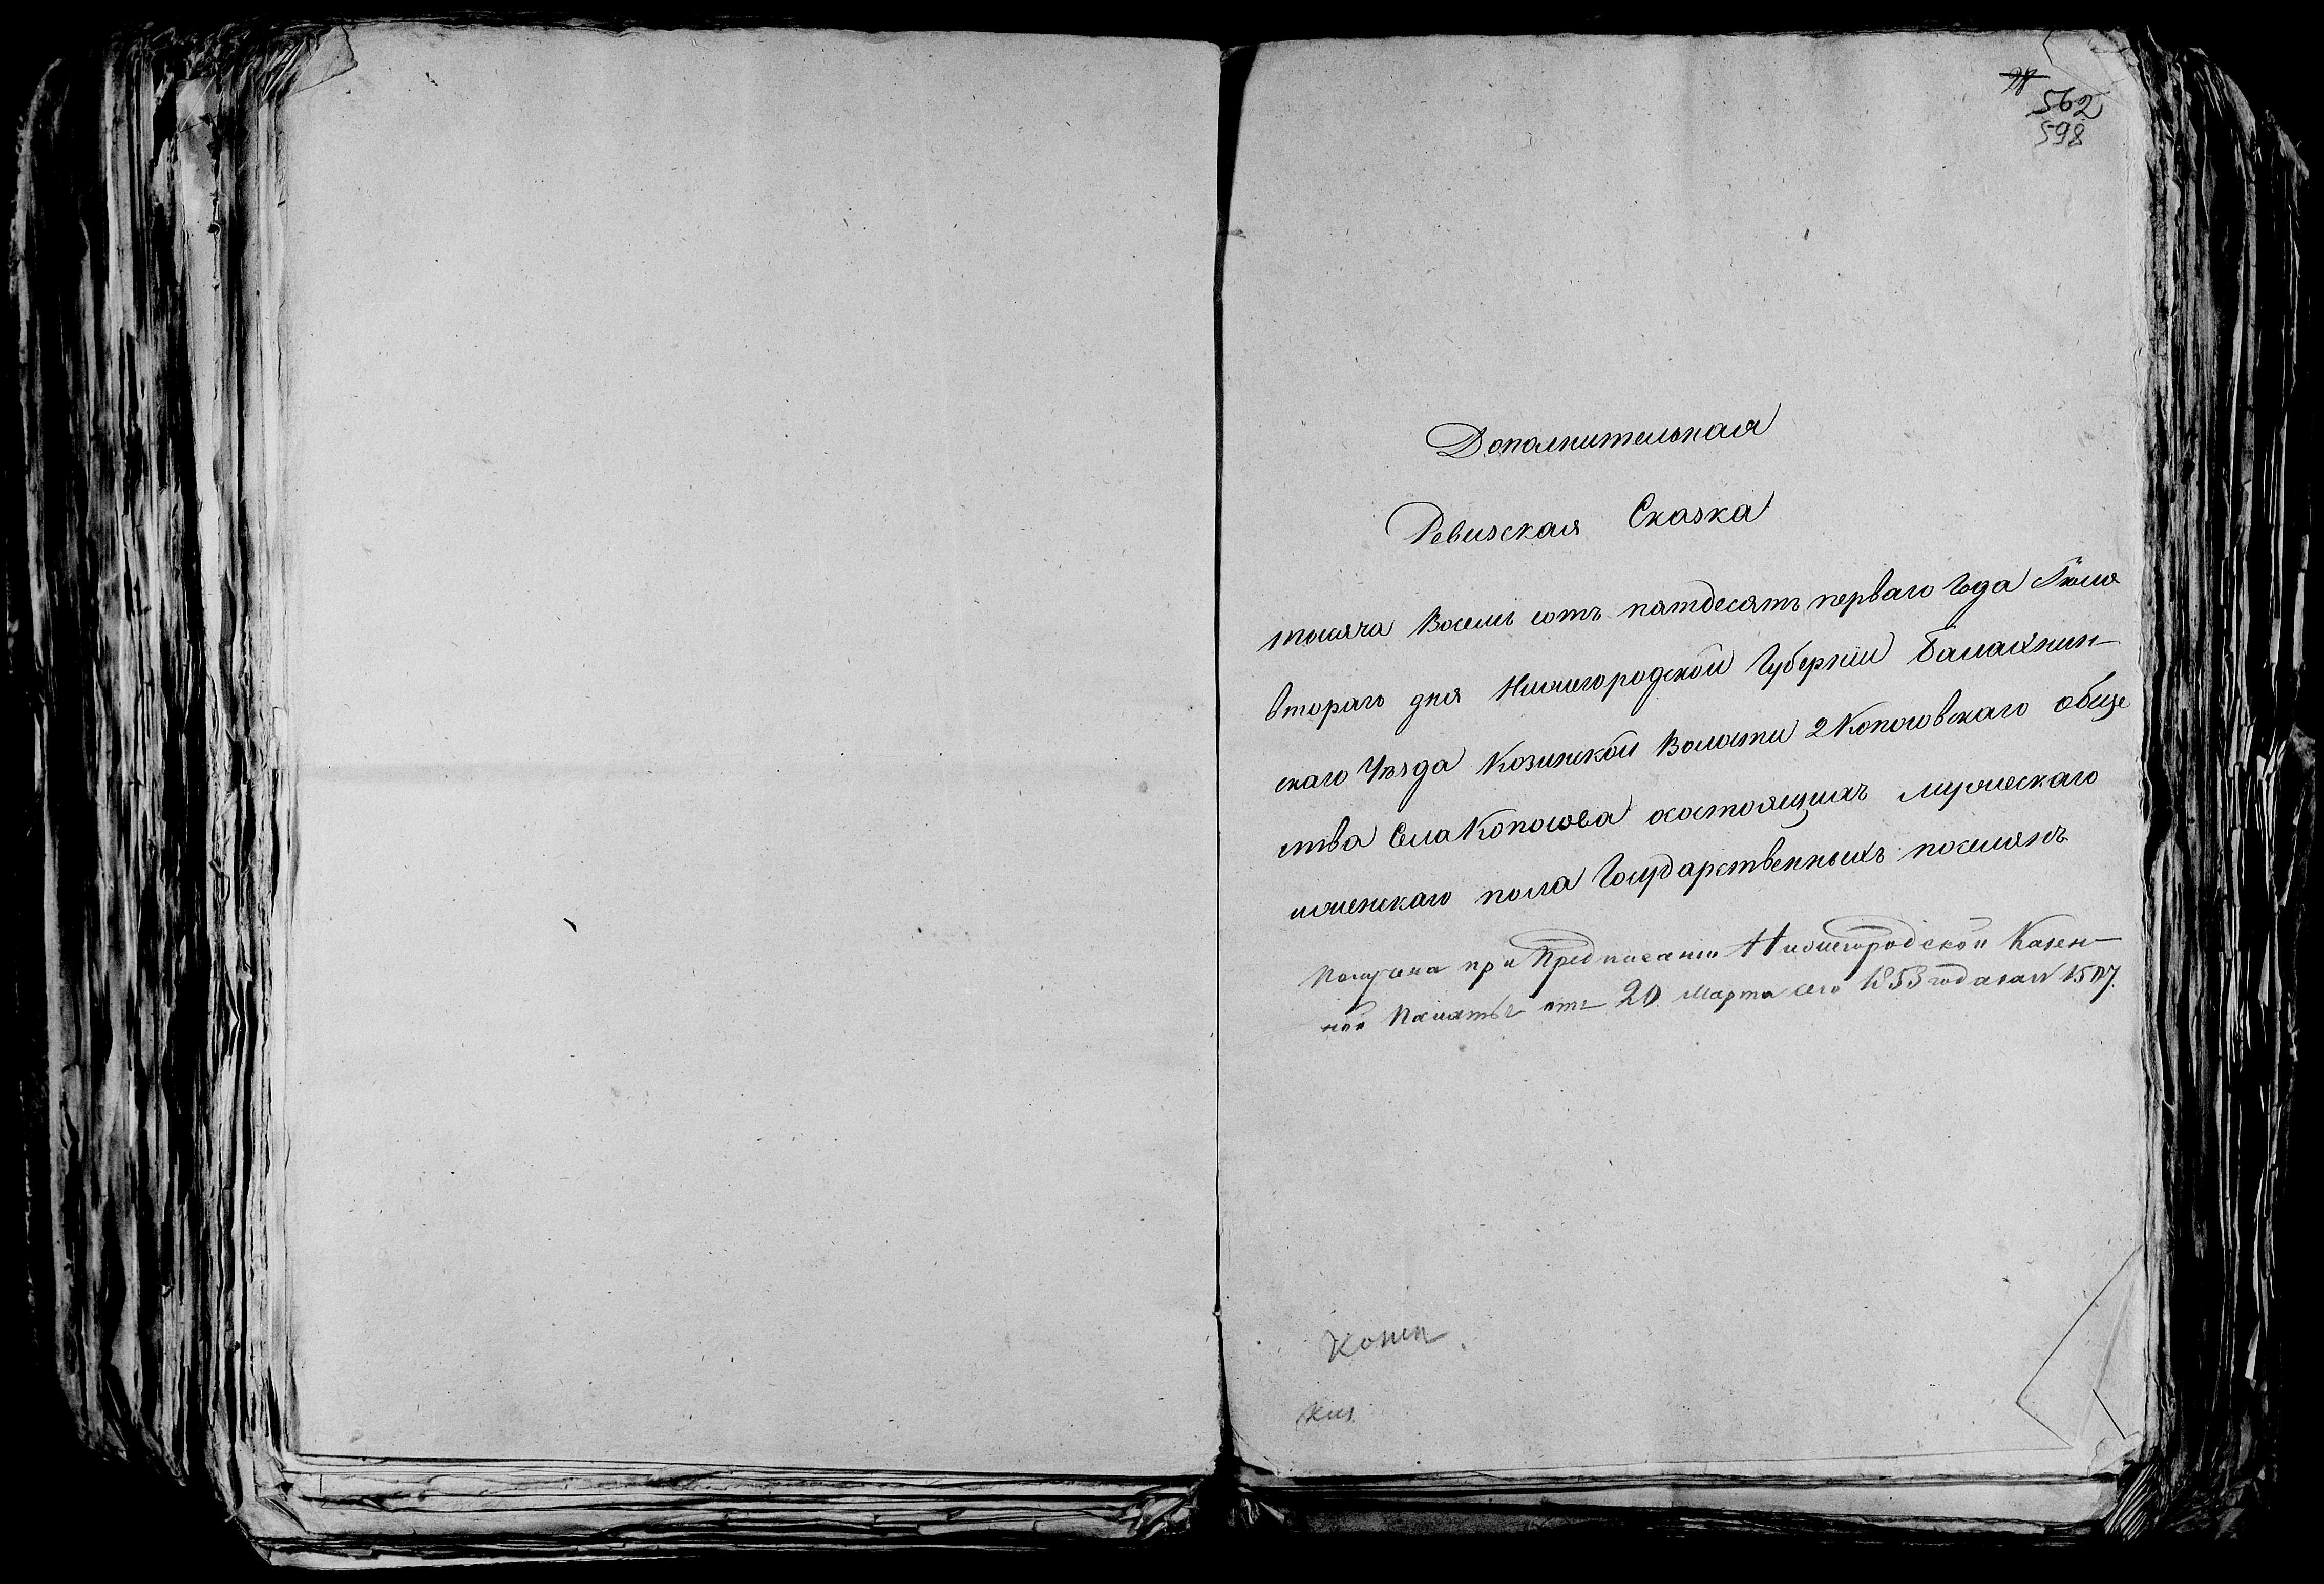 562
598
Дополнительная
Ревизская Сказка
тысяча восемь сотъ пятдесятъ перваго Года Июня
втораго дня Нижегородской Губерніи Балахнин-
скаго Уѣзда Козинской Волости 2 Копосовскаго обще
ства Села Копосова осостоящихъ мужескаго
иженскаго пола Государственныхъ поселянъ
Получена при Предписаніи Нижегородской Казен-
ной Палаты отъ 20 Марта сего 1853 года за №
Копия